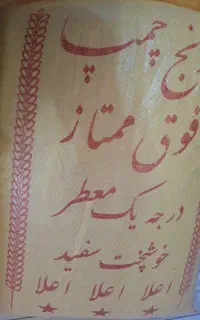 نج چمپا
فوق ممتاز
درجه یک معطر
خوشپخت سفید
اعلا اعلا اعلا